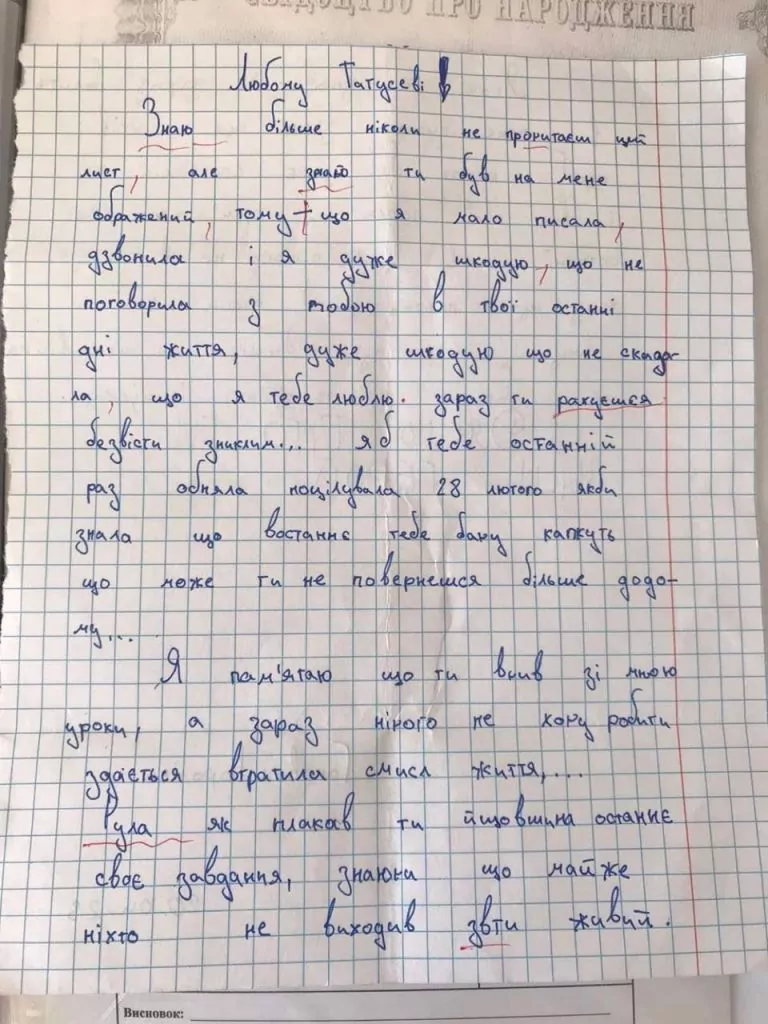 СВІДОЦТВО ПРО НАРОДЖЕННЯ
Любому Татусеві
Знаю більше ніколи не прочитаєш цей
лист, але знаю ти був на мене
ображений, тому що я мало писала,
дзвонила і я дуже шкодую, що не
поговорила з тобою в твої останні
дні життя, дуже шкодую що не сказа-
ла, що я тебе люблю. зараз ти рахуєшся
безвісти зниклим... я б тебе останній
раз обняла поцілувала 28 лютого якби
знала що востаннє тебе бачу кажуть
що може ти не повернешся більше додо-
му...
Я пам'ятаю що ти вчив зі мною
уроки, а зараз нічого не хочу робити
здається втратила смисл життя,...
чула як плакав ти йшовши на останнє
своє завдання, знаючи що майже
ніхто не виходив звти живий.
Висновок: